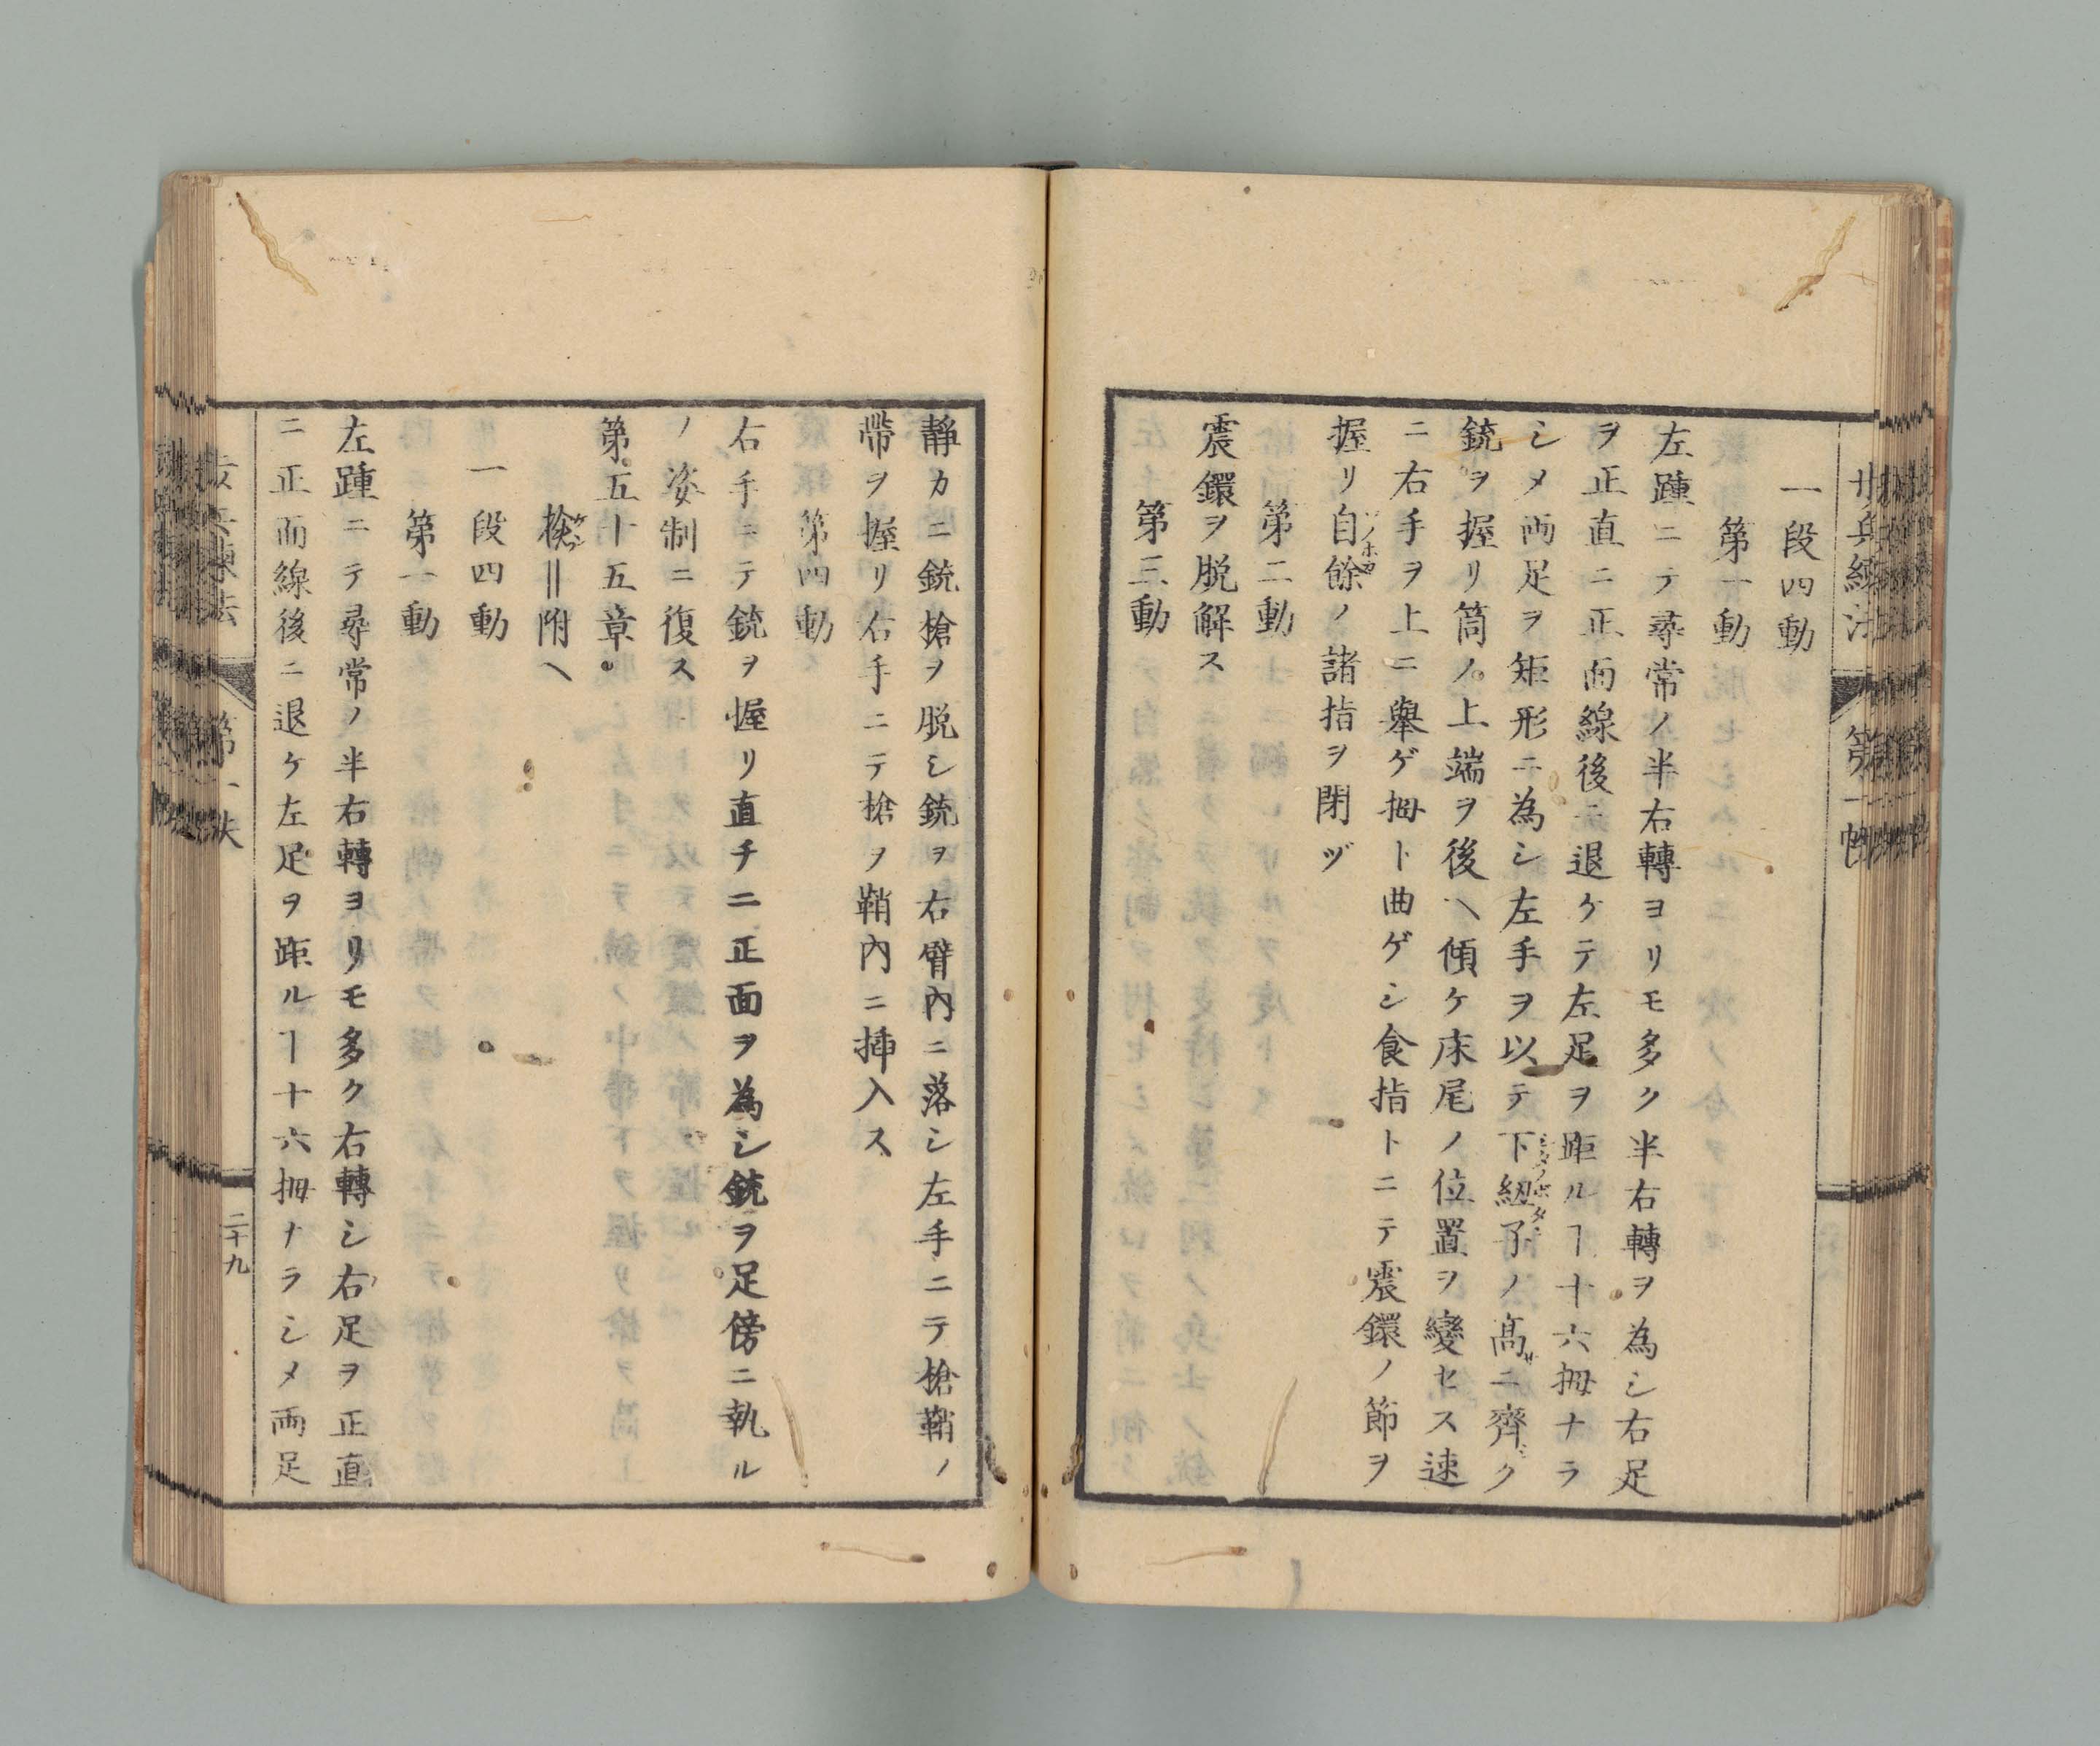 一段四動
第一動
左踵ニテ尋常ノ半右轉ヨリモ多ク半右轉ヲ為シ右足
ヲ正直ニ正面線後ニ退ケテ左足ヲ距ルヿ十六拇ナラ
シメ両足ヲ矩形ニ為シ左手ヲ以テ下紐子ノ髙サニ齊シク
銃ヲ握リ筒ノ上端ヲ後ヘ傾ケ床尾ノ位置ヲ變セス速
ニ右手ヲ上ニ舉ゲ拇ト曲ゲシ食指トニテ震鐶ノ節ヲ
握リ自餘ノ諸指ヲ閉ヅ
第二動
震鐶ヲ脱解ス
第三動
靜カニ銃槍ヲ脱シ銃ヲ右臂內ニ落シ左手ニテ槍鞘ノ
帶ヲ握リ右手ニテ槍ヲ鞘內ニ挿入ス
第四動
右手ニテ銃ヲ握リ直チニ正面ヲ為シ銃ヲ足傍ニ執ル
ノ姿制ニ復ス
第五十五章。
檢‖附ヘ
一段四動
第一動
左踵ニテ尋常ノ半右轉ヨリモ多ク右轉シ右足ヲ正直
ニ正面線後ニ退ケ左足ヲ距ルヿ十六拇ナラシメ両足
二十九